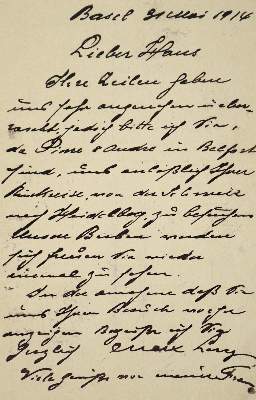 Basel 21 Mai 1914
Lieber Hans
Ihre Zeilen haben
uns sehr angenehm über-
rascht, jedoch bitte ich Sie,
da Pierre & André in Belfort
sind, uns anläßlich Ihrer
Rückreise, von der Schweiz
nach Heidelberg, zu besuchen
Unsere Buben werden
sich freuen Sie wieder
einmal zu sehen.
In der annahme daß Sie
uns Ihren Besuch vorher
anzeigen begrüße ich Sie
Herzlich Max
Viele Grüße von meiner Frau